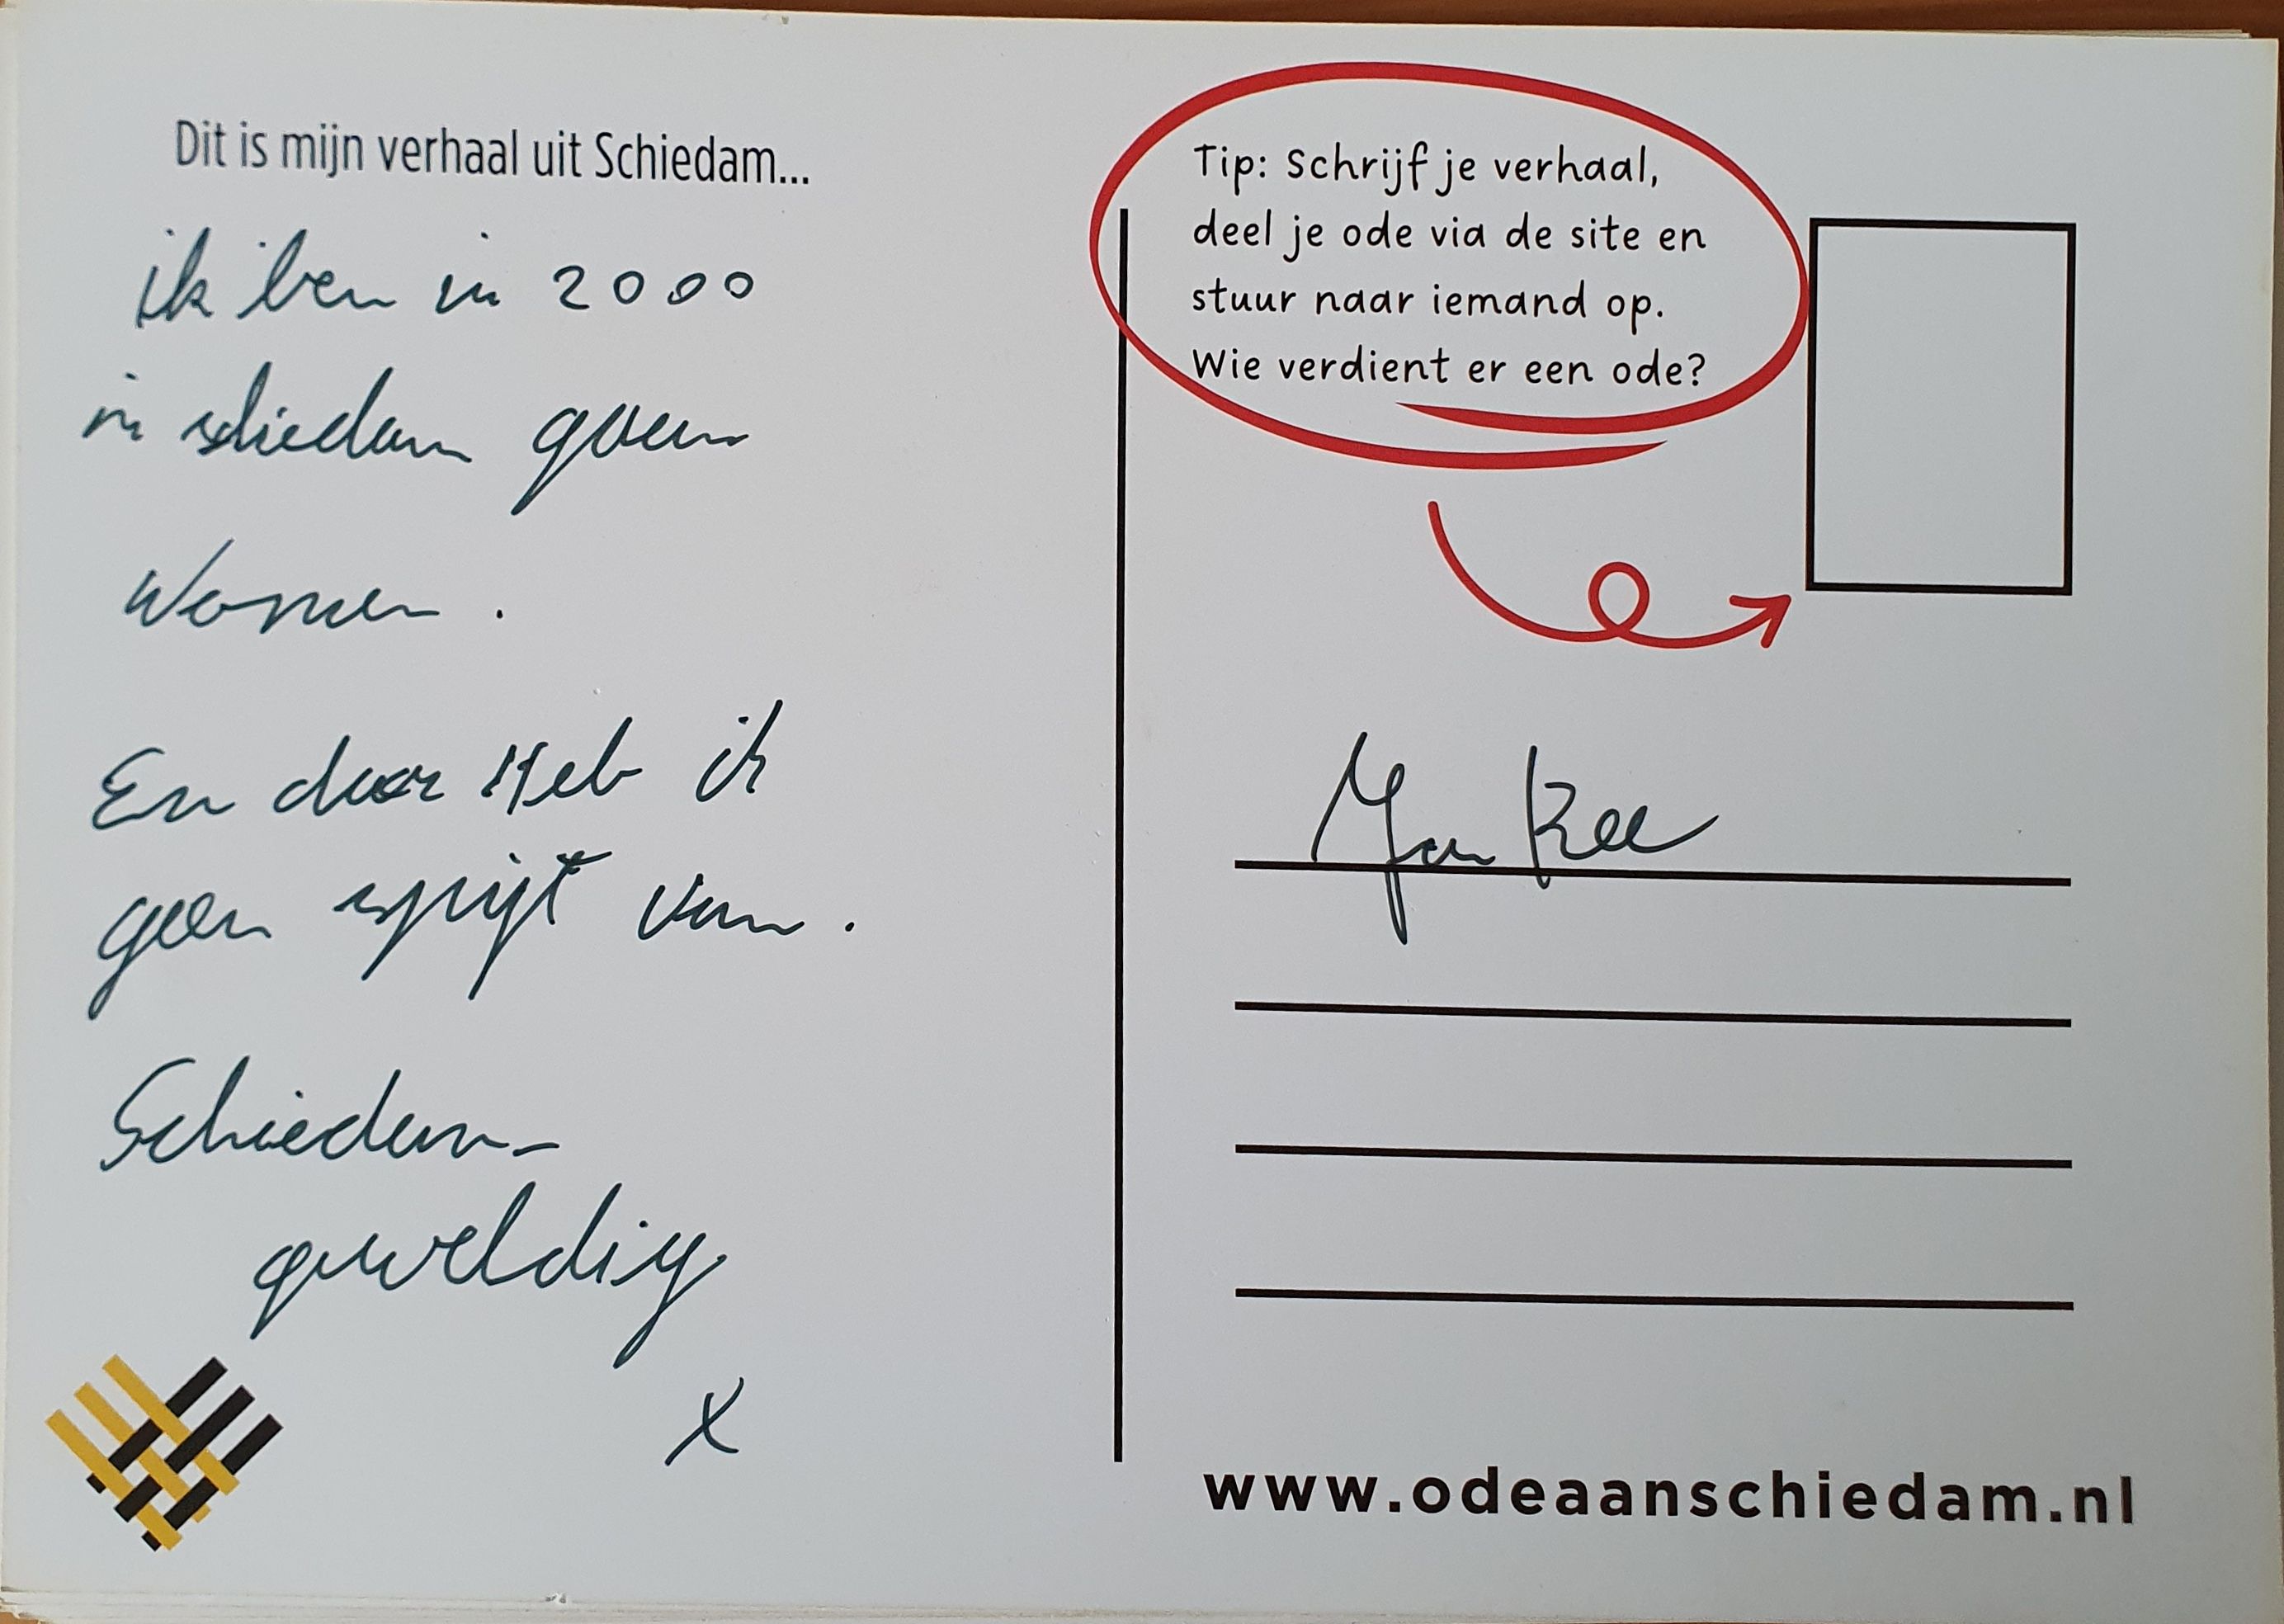 Dit is mijn verhaal uit Schiedam...
ik ben in 2000
in schiedam gaan
wonen.
En daar Heb ik
geen spijt van.
Schiedam-
geweldig
X
Tip: Schrijf je verhaal,
deel je ode via de site en
stuur naar iemand op.
Wie verdient er een ode?
www.odeaanschiedam.nl